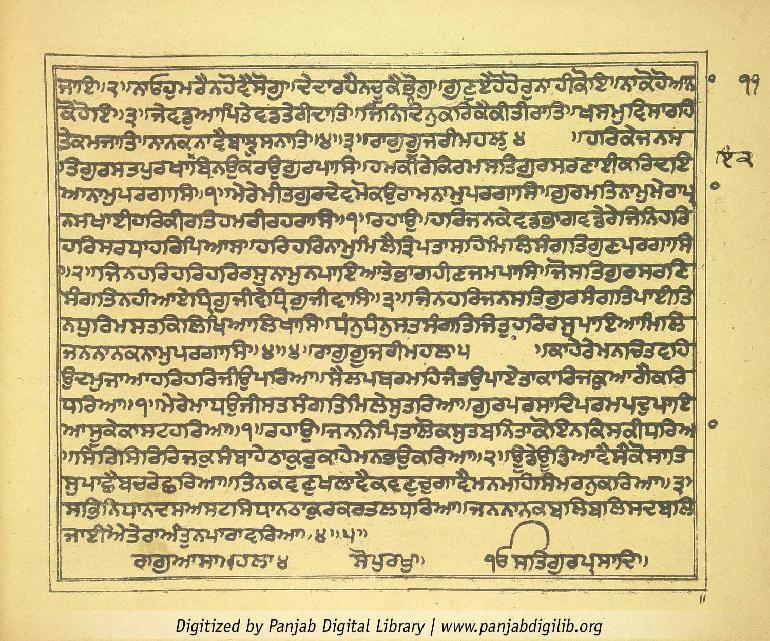 ਜਾਇ॥੨॥ਨਾਓਹੁਮਰੈਨਹੋਵੈਸੋਗੁ॥ਦੇਦਾਰਹੈਨਚੂਕੈਭੋਗੁ॥ਗੁਣੁਏਹੋਹੋਰੁਨਾਹੀਕੋਇ॥ਨਾਕੋਹੋਆਨਾ ੧੧
ਕੋਹੋਇ॥੩॥ਜੇਵਡੁਆਪਿਤੇਵਡਤੇਰੀਦਾਤਿ॥ਜਿਨਿਦਿਨੁਕਰਿਕੈਕੀਤੀਰਾਤਿ॥ਖਸਮੁਵਿਸਾਰਹਿ
ਤੇਕਮਜਾਤਿ॥ਨਾਨਕਨਾਵੈਬਾਝੁਸਨਾਤਿ॥੪॥੩॥ਰਾਗੁਗੂਜਰੀਮਹਲਾ੪ ॥ਹਰਿਕੇਜਨਸ
ਤਿਗੁਰਸਤਪੁਰਖਾਬਿਨਉਕਰਉਗੁਰਪਾਸਿ॥ਹਮਕੀਰੇਕਿਰਮਸਤਿਗੁਰਸਰਣਾਈਕਰਿਦਇ
ਆਨਾਮੁਪਰਗਾਸਿ॥੧॥ਮੇਰੇਮੀਤਗੁਰਦੇਵਮੋਕਉਰਾਮਨਾਮੁਪਰਗਾਸਿ॥ਗੁਰਮਤਿਨਾਮੁਮੇਰਾਪ੍ਰਾ
ਨਸਖਾਈਹਰਿਕੀਰਤਿਹਮਰੀਰਹਰਾਸਿ॥੧॥ਰਹਾਉ॥ਹਰਿਜਨਕੇਵਡਭਾਗਵਡੇਰੇਜਿਨਹਰਿ
ਹਰਿਸਰਧਾਹਰਿਪਿਆਸ॥ਹਰਿਹਰਿਨਾਮੁਮਿਲੈਤ੍ਰਿਪਤਾਸਹਿਮਿਲਿਸੰਗਤਿਗੁਣਪਰਗਾਸਿ
॥੨॥ਜਿਨਹਰਿਹਰਿਹਰਿਰਸੁਨਾਮੁਨਪਾਇਆਤੇਭਾਗਹੀਣਜਮਪਾਸਿ॥ਜੋਸਤਿਗੁਰਸਰਣਿ
ਸੰਗਤਿਨਹੀਆਏਧ੍ਰਿਗੁਜੀਵੇਧ੍ਰਿਗੁਜੀਵਾਸਿ॥੩॥ਜਿਨਹਰਿਜਨਸਤਿਗੁਰਸੰਗਤਿਪਾਈਤਿ
ਨਧੁਰਿਮਸਤਕਿਲਿਖਿਆਲਿਖਾਸਿ॥ਧੰਨੁਧੰਨੁਸਤਸੰਗਤਿਜਿਤੁਹਰਿਰਸੁਪਾਇਆਮਿਲਿ
ਜਨਨਾਨਕਨਾਮੁਪਰਗਾਸਿ॥੪॥੪॥ਰਾਗੁਗੂਜਰੀਮਹਲਾ੫ ॥ਕਾਹੇਰੇਮਨਚਿਤਵਹਿ
ਉਦਮੁਜਾਆਹਰਿਹਰਿਜੀਉਪਰਿਆ॥ਸੈਲਪਥਰਮਹਿਜੰਤਉਪਾਏਤਾਕਾਰਿਜਕੁਆਗੈਕਰਿ
ਧਰਿਆ॥੧॥ਮੇਰੇਮਾਧਉਜੀਸਤਸੰਗਤਿਮਿਲੇਸੁਤਰਿਆ॥ਗੁਰਪਰਸਾਦਿਪਰਮਪਦੁਪਾਇ
ਆਸੂਕੇਕਾਸਟਹਰਿਆ॥੧॥ਰਹਾਉ॥ਜਨਨਿਪਿਤਾਲੋਕਸੁਤਬਨਿਤਾਕੋਇਨਕਿਸਕੀਧਰਿਆ
॥ਸਿਰਿਸਿਰਿਰਿਜਕੁਸੰਬਾਹੇਠਾਕੁਰੁਕਾਹੇਮਨਭਉਕਰਿਆ॥੨॥ਊਡੇਊਡਿਆਵੈਸੈਕੋਸਾਤਿ
ਸੁਪਾਛੈਬਚਰੇਛਰਿਆ॥ਤਿਨਕਵਣੁਖਲਾਵੈਕਵਣੁਚੁਗਾਵੈਮਨਮਹਿਸਿਮਰਨੁਕਰਿਆ॥੩॥
ਸਭਿਨਿਧਾਨਦਸਅਸਟਸਿਧਾਨਠਾਕੁਰਕਰਤਲਧਰਿਆ॥ਜਨਨਾਨਕਬਲਿਬਲਿਸਦਬਲਿ
ਜਾਈਐਤੇਰਾਅੰਤੁਨਪਾਰਾਵਰਿਆ॥੪॥੫॥
ਰਾਗੁਆਸਾਮਹਲਾ੪ ਸੋਪੁਰਖੁ॥ ੧ਓਸਤਿਗੁਰਪ੍ਰਸਾਦਿ॥
Digitized by Panjab Digital Library | www.panjabdigilib.org